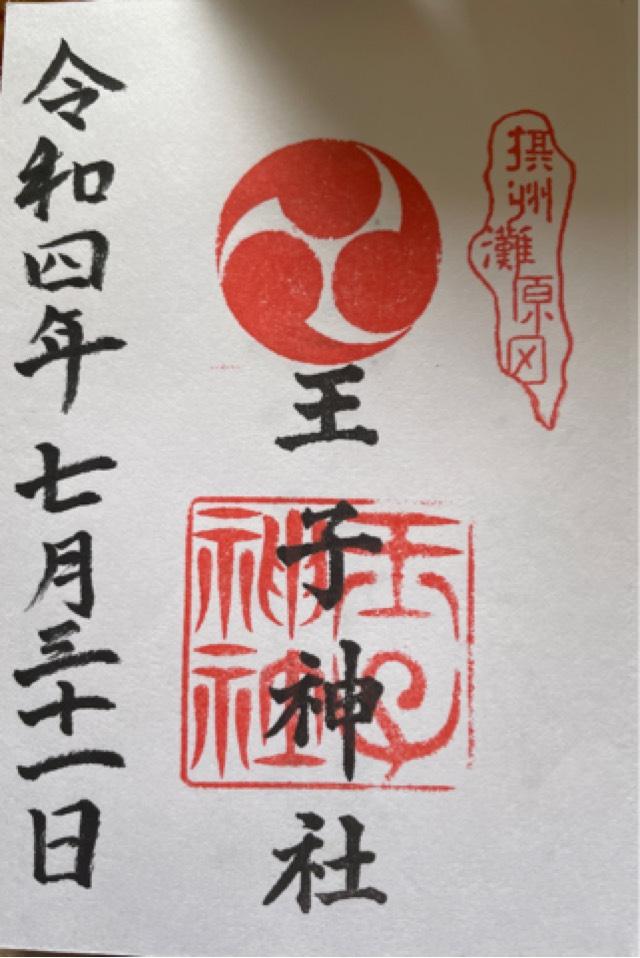 摂州
灘
原田
王子神社
王子
神社
令和四年七月三十一日